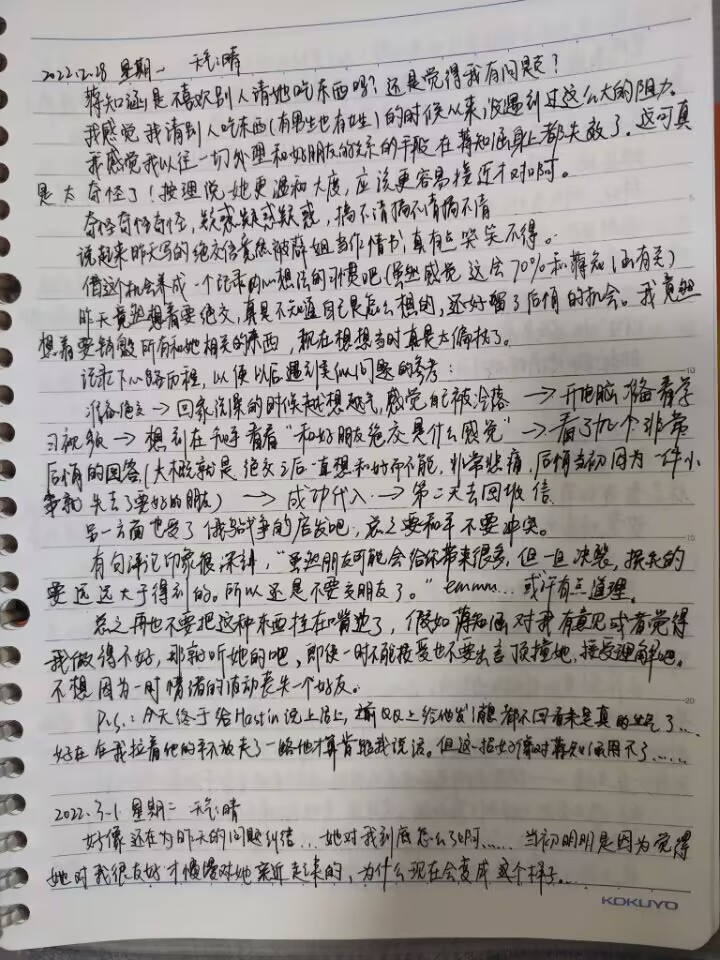 2022.2.28 星期一 天气:晴
蒋知涵是不喜欢别人请她吃东西吗?还是觉得我有问题?
我感觉我请别人吃东西(有男生也有女生)的时候从来没遇到过这么大的阻力.
我感觉我以往一切处理和好朋友的关系的手段在蒋知涵身上都失效了.这可真
是太奇怪了!按理说她更温和大度,应该更容易接近才对啊。
奇怪奇怪奇怪,疑惑疑惑疑惑,搞不清搞不清搞不清
说起来昨天写的绝交信竟然被薛姐当作情书,真有点哭笑不得。
借这个机会养成一个记录内心想法的习惯吧(虽然感觉这会70%和蒋知涵有关)
昨天竟然想着要绝交,真是不知道自己是怎么想的,还好留了后悔的机会。我竟然
想着要销毁所有和她相关的东西,现在想想当时真是太偏执了。
记录下心路历程,以便以后遇到类似问题的参考:
准备绝交→回家洗澡的时候越想越气,感觉自己被冷落→开电脑准备看学
习视频→想到在知乎看看"和好朋友绝交是什么感觉"→看了几个非常
后悔的回答(大概就是绝交之后一直想和好而不能,非常悲痛,后悔当初因为一件小
事就失去了要好的朋友)→成功代入→第二天去回收信.
另一方面也受了俄乌战争的启发吧,总之要和平不要冲突。
有句评论印象很深刻,"虽然朋友可能会给你带来很多,但一旦决裂,损失的
要远远大于得到的。所以还是不要交朋友了。"emmm...或许有点道理。
总之再也不要把这种东西挂在嘴边了,假如蒋知涵对我有意见或者觉得
我做得不好,那就听她的吧,即使一时不能接受也不要出言顶撞她,接受理解吧。
不想因为一时情绪的波动丧失一个好友。
P.S.:今天终于给Hastin说上话上,前QQ上给他发消息都不回看来是真的生气了....
好在在我拉着他的手不放走了一路他才算肯跟我说话。但这一招好像对蒋知涵用不了......
2022.3.1 星期二 天气:晴
好像还在为昨天的问题纠结...她对我到底怎么了啊......当初明明是因为觉得
她对我很友好才慢慢对她亲近起来的,为什么现在会变成这个样子...
KOKUYO